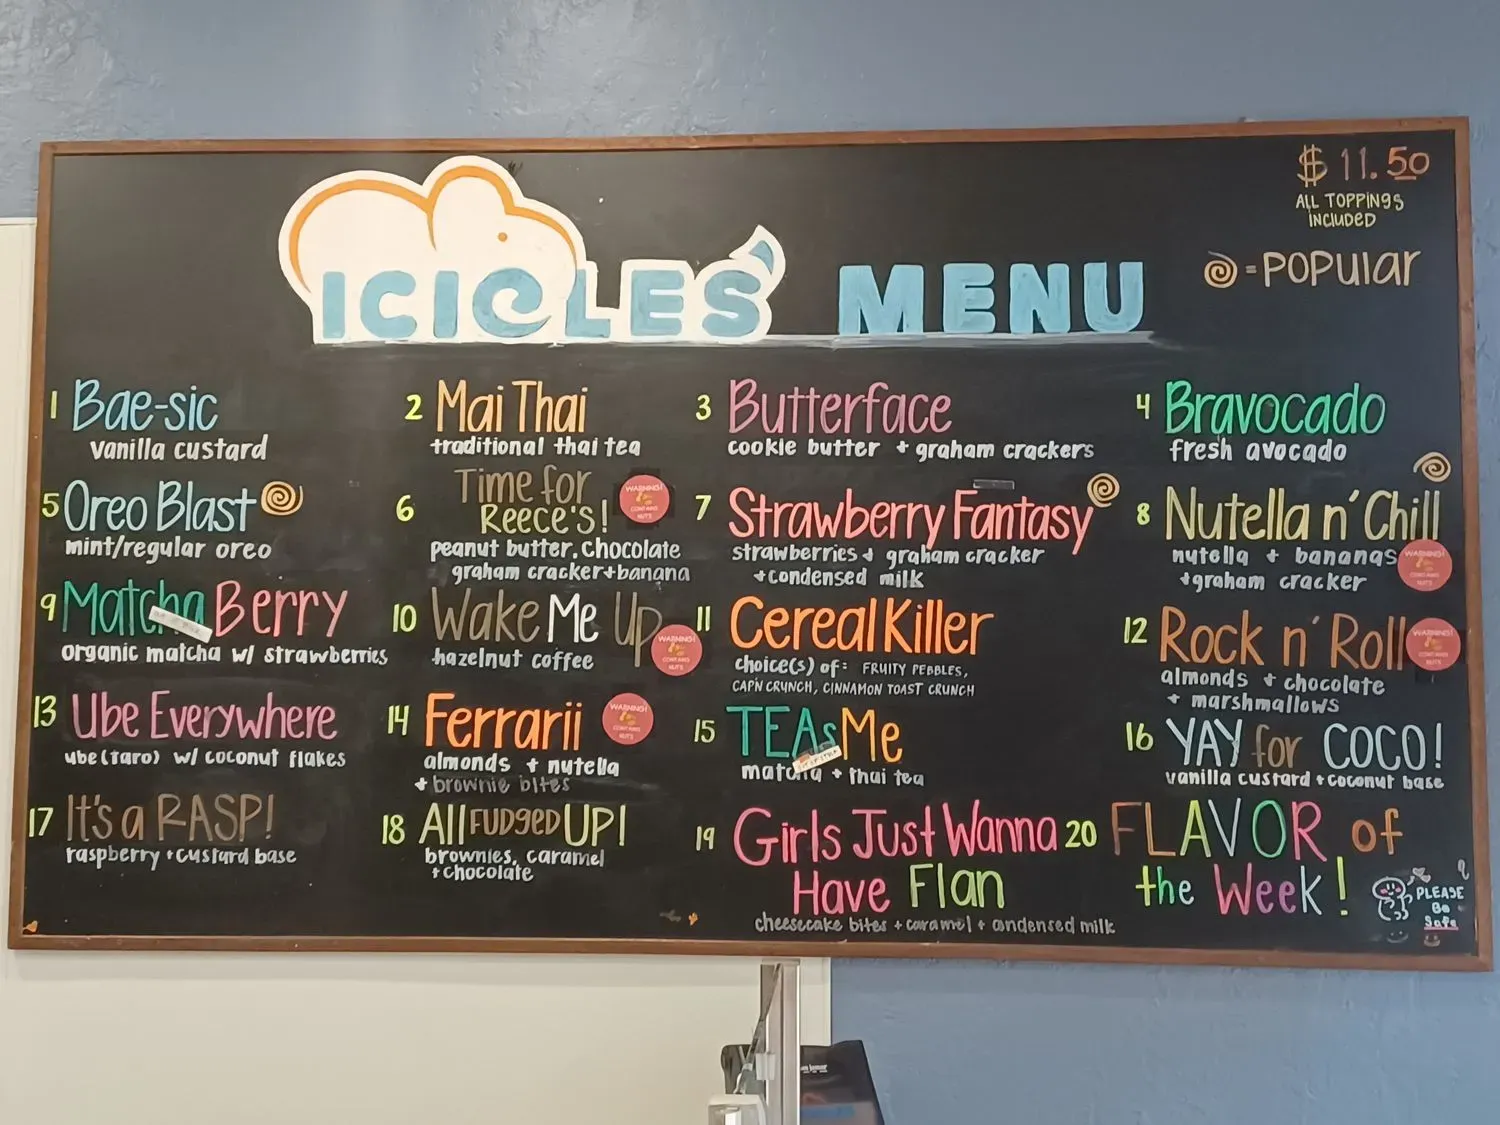 $ 11.50
ALL TOPPINGS
INCLUDED
= POPULAR
ICICLES' MENU
1 Bae-sic
vanilla custard
2 Mai Thai
traditional thai tea
3 Butterface
cookie butter + graham crackers
4 Bravocado
fresh avocado
5 Oreo Blast
mint/regular oreo
6 Time for
Reece's!
peanut butter, chocolate
graham cracker + banana
WARNING!
CONTAINS
NUTS
7 Strawberry Fantasy
strawberries + graham cracker
+ condensed milk
8 Nutella n' Chill
nutella + bananas
+ graham cracker
WARNING!
CONTAINS
NUTS
9 Matcha Berry
organic matcha w/ strawberries
10 Wake Me Up
hazelnut coffee
WARNING!
CONTAINS
NUTS
11 Cereal Killer
choice(s) of: FRUITY PEBBLES,
CAP'N CRUNCH, CINNAMON TOAST CRUNCH
12 Rock n' Roll
almonds + chocolate
+ marshmallows
WARNING!
CONTAINS
NUTS
13 Ube Everywhere
ube (taro) w/ coconut flakes
14 Ferrarii
almonds + nutella
+ brownie bites
WARNING!
CONTAINS
NUTS
15 TEAs Me
matcha + thai tea
16 YAY for COCO!
vanilla custard + coconut base
17 It's a RASP!
raspberry + custard base
18 All FUDGED UP!
brownies, caramel
+ chocolate
19 Girls Just Wanna
Have Flan
cheesecake bites + caramel + condensed milk
20 FLAVOR of
the Week!
PLEASE
Be
Safe